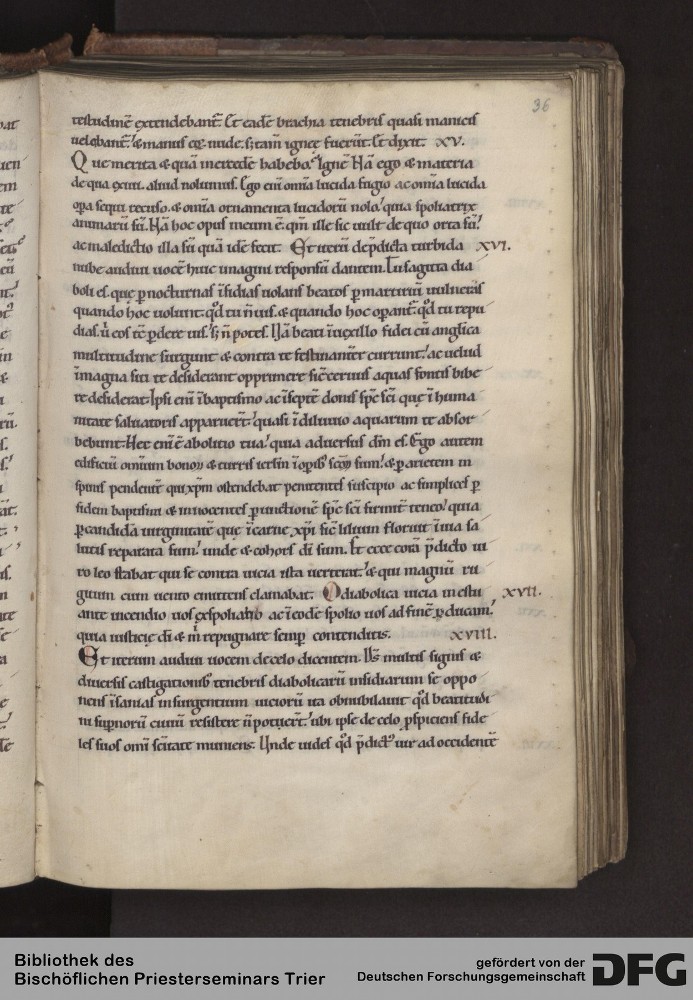 36
testudinē extendebant̄. Et eadē brachia tenebris quasi manicis
uelabant̄. & manus eꝗ nude. s; tam̄ igneę fuer̄t. Et dixit. XV.
Que merita & quā mercedē habebo? Ignē. Nā ego & materia
de qua exiui. aliud nolumus. Ego eni omīa lucida fugio ac omīa lucida
opa sequi recuso. & omīa ornamenta lucidorū nolo. quia spoliatrix
animarū sū. Nā hoc opus meum ē. qm̄ ille sic uult de quo orta sū.
ac maledictio illa sū quā idē fecit. Et iterū de p̄dicta turbida XVI.
nube audiui uocē huic imagini responsū dantem. Tu sagitta dia
boli es. quę p nocturnas īsidias uolans beatos p martiriū uulneras
quando hoc uolunt. qd tu n̄ uis. & quando hoc opant̄. qd tu repu
dias. ū eos tē pdere uis. s; n̄ potes. Nā beati ī uexillo fidei cū anglica
multitudine surgunt & contra te festinanter currunt. ac uelud
ī magna siti te desiderant opprimere sic ceruus aquas fontis bibe
re desiderat. Ipsi eni ī baptismo ac ī septē donis sp̄c sc̄i quę ī huma
nitate saluatoris apparuer̄t. quasi ī diluuio aquarum te absor
bebunt. Hec eni ē abolitio tua. quia aduersus dm̄ es. Ego autem
edificiū omnium bonoꝝ & turris ierlm̄ ī opib; sc̄oꝝ sum. & p arietem in
spinis pendentē qui xp̄m ostendebat penitentes suscipio ac simplices p
fidem baptismi & innocentes p unctionē sp̄c sc̄i firmit̄ teneo. quia
p candidā uirginitatē quę ī carne xp̄i sic lilium floruit ī uia sa
lutis reparata sum. unde & cohors dī sum. Et ecce corā p̄dicto ui
ro leo stabat qui se contra uicia ista uerterat. & qui magnū ru
gitum cum uento emittens clamabat. O diabolica uicia in estu XVII.
ante incendio uos exspoliabo ac ī eodē spolio uos ad finē pducam.
quia iusticię dī & m̄ repugnare semp contenditis. XVIII.
Et iterum audiui uocem de celo dicentem. Ds̄ multis signis &
diuersis castigationib; tenebris diabolicarū insidiarum se oppo
nens īsanias insurgentium uiciorū ita obnubilauit qd beatitudi
ni supnorū ciuiū resistere n̄ potuer̄t. ubi ipse de celo pspiciens fide
les suos omī sc̄itate muniens. Unde uides qd p̄dict' uir ad occidentē
Bibliothek des
Bischöflichen Priesterseminars Trier
gefördert von der
Deutschen Forschungsgemeinschaft
DFG